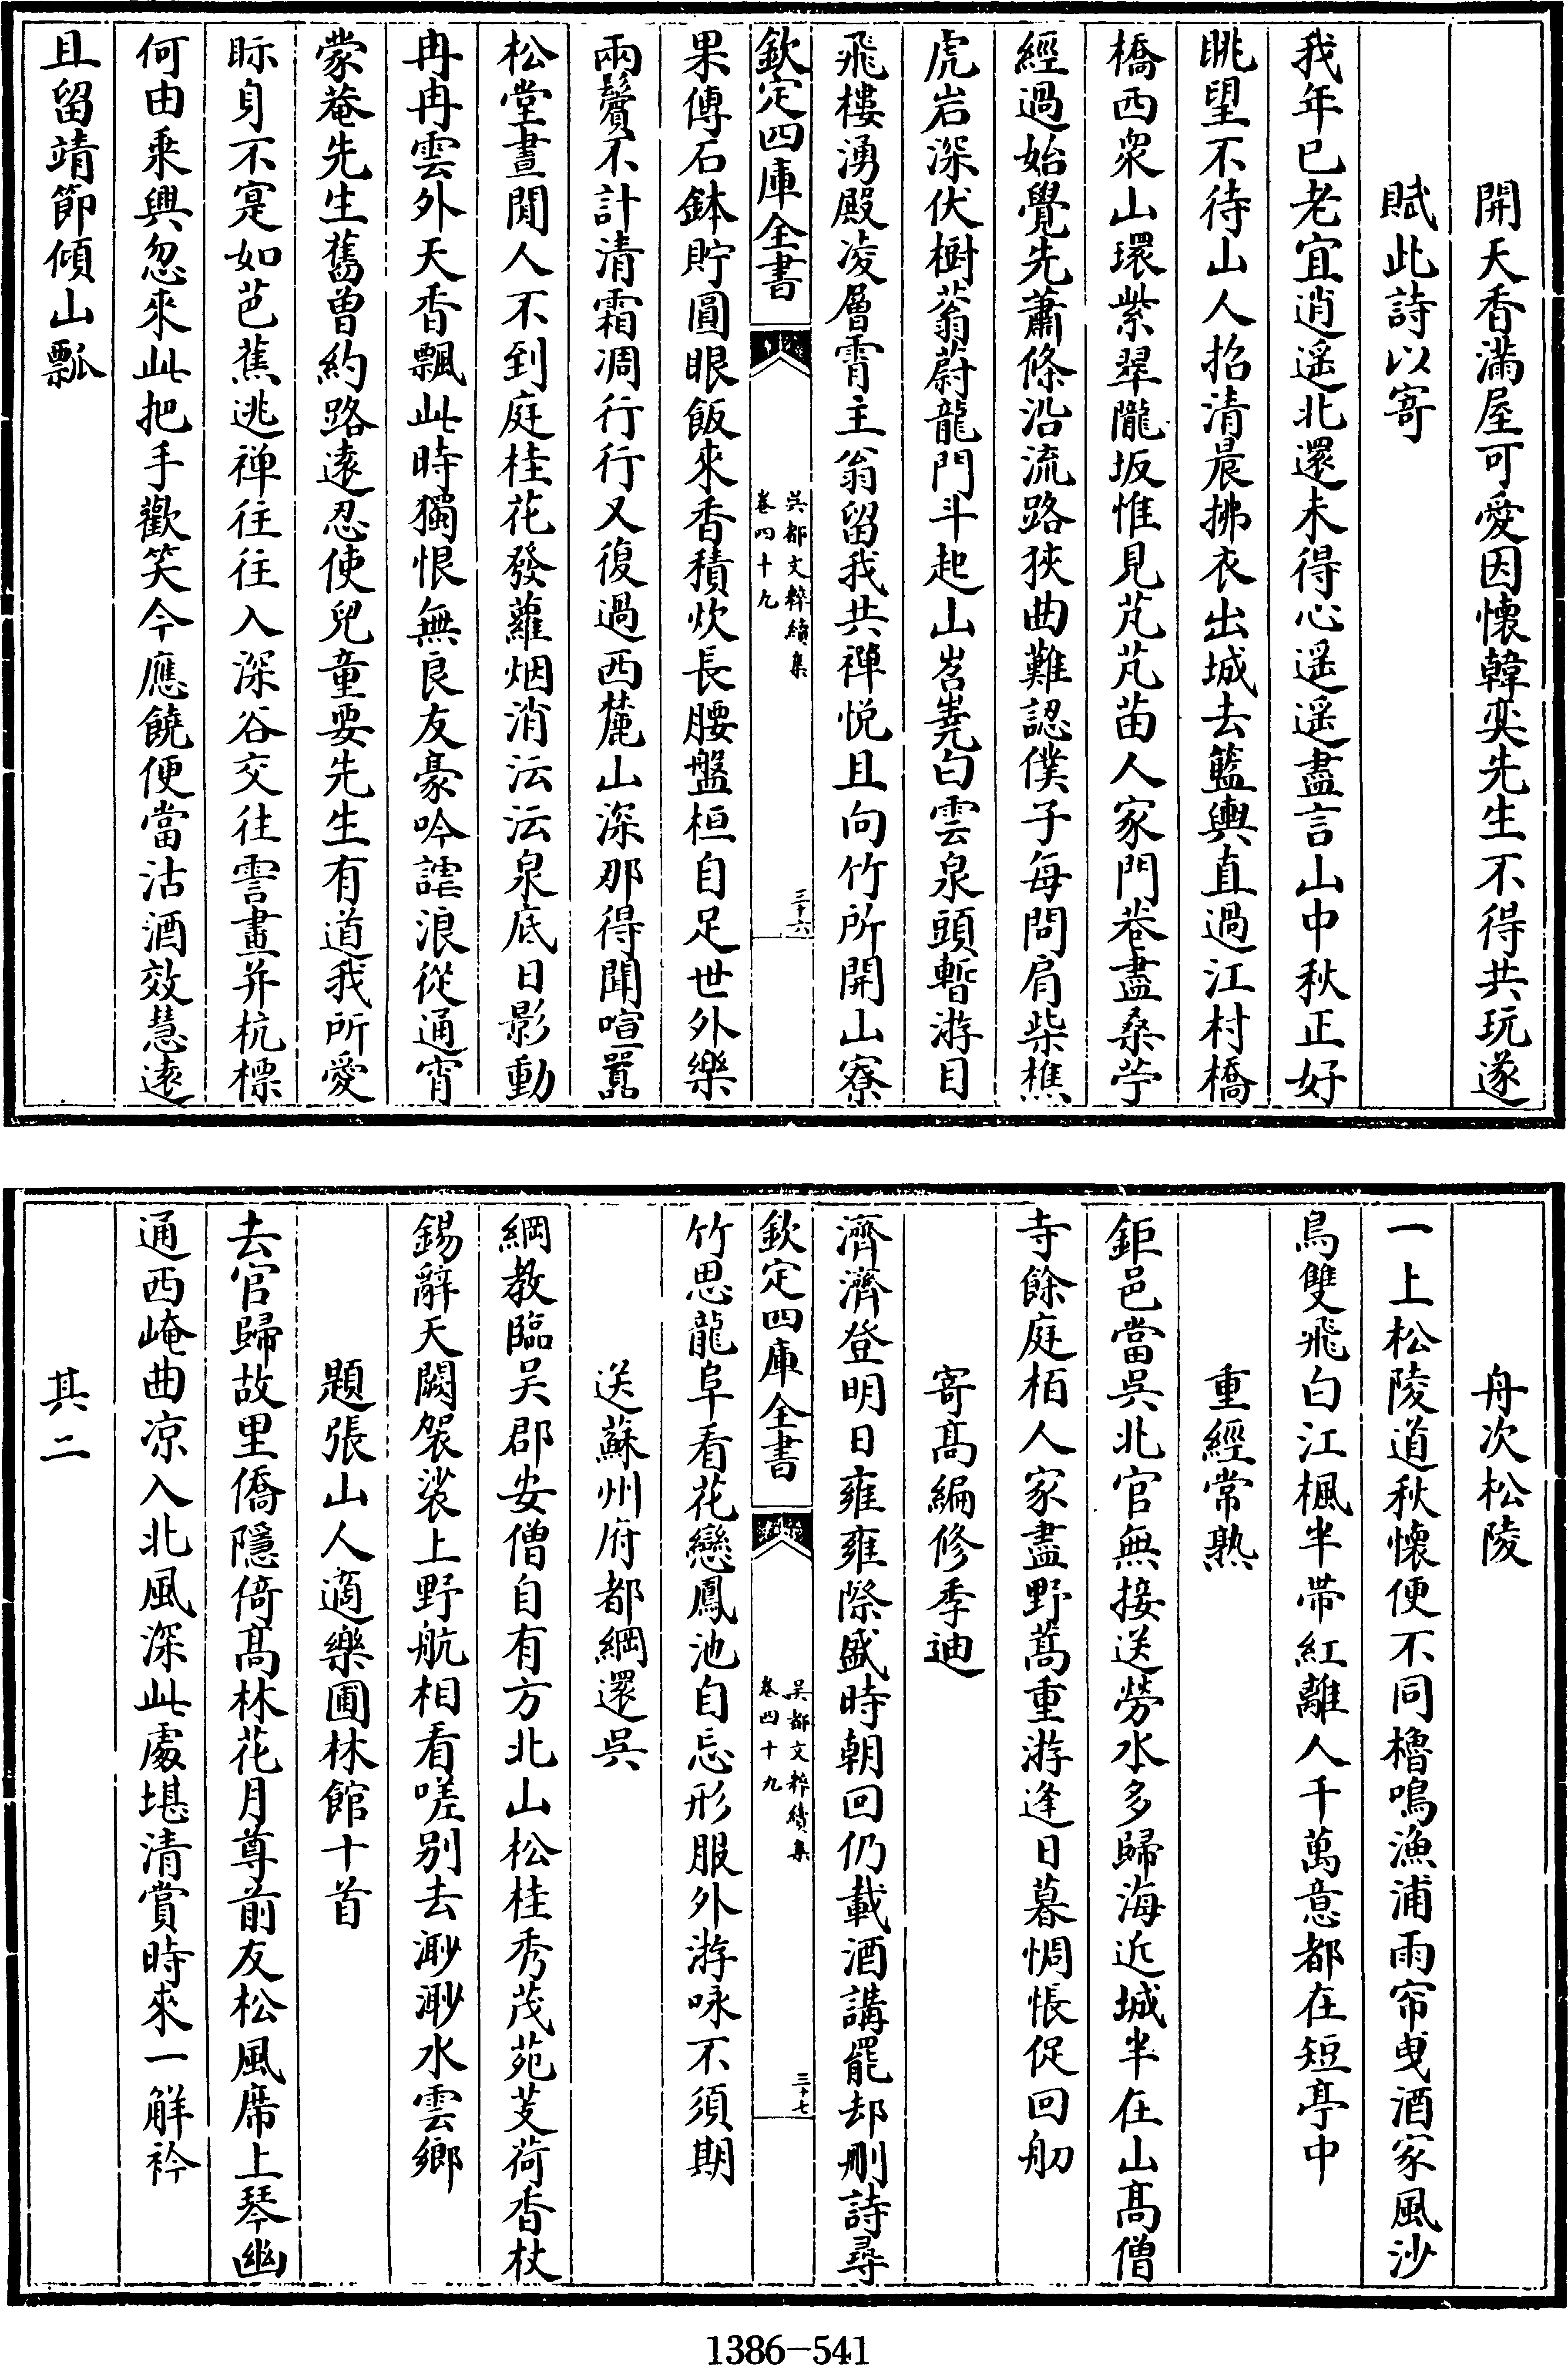 開天香滿屋可愛因懷韓奕先生不得共玩遂
賦此詩以寄
我年已老宜逍遥北還未得心遥遥盡言山中秋正好
眺望不待山人招清晨拂衣出城去籃輿直過江村橋
橋西衆山環紫翠隴坂惟見芃芃苗人家門巷盡桑苧
經過始覺先蕭條沿流路狹曲難認僕子每問肩柴樵
虎岩深伏樹蓊蔚龍門斗起山岧嶤白雲泉頭暫游目
飛樓湧殿凌層霄主翁留我共禪悦且向竹所開山寮
欽定四庫全書
吳都文粹續集
卷四十九
三十六
果傳石鉢貯圓眼飯來香積炊長腰盤桓自足世外樂
兩鬢不計清霜凋行行又復過西麓山深那得聞喧囂
松堂晝閒人不到庭桂花發蘿烟消沄沄泉底日影動
冉冉雲外天香飄此時獨恨無良友豪吟謔浪從通宵
蒙菴先生舊曾約路遠忍使兒童要先生有道我所愛
眎身不寔如芭蕉逃禅往往入深谷交往雲畫并杭標
何由乘興忽來此把手歡笑今應饒便當沽酒效慧遠
且留靖節傾山瓢
舟次松陵
一上松陵道秋懷便不同櫓鳴漁浦雨帘曵酒家風沙
鳥雙飛白江楓半帶紅離人千萬意都在短亭中
重經常熟
鉅邑當吳北官無接送勞水多歸海近城半在山髙僧
寺餘庭栢人家盡野蒿重游逢日暮惆悵促回舠
寄髙編修季迪
濟濟登明日雍雍際盛時朝回仍載酒講罷却刪詩尋
欽定四庫全書
吳都文粹續集
卷四十九
三十七
竹思龍阜看花戀鳳池自忘形服外游咏不須期
送蘇州府都綱還吳
綱教臨吴郡安僧自有方北山松桂秀茂苑芰荷香杖
錫辭天闕袈裟上野航相看嗟别去渺渺水雲鄉
題張山人適樂圃林館十首
去官歸故里僑隱倚髙林花月尊前友松風席上琴幽
通西崦曲凉入北風深此處堪清賞時來一解衿
其二
1386-541